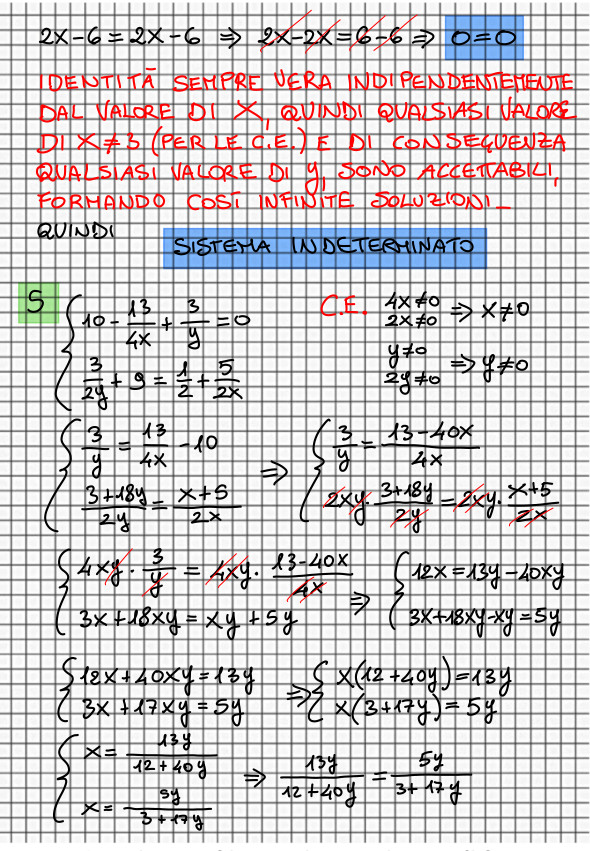 2x-6=2x-6 ⇒ 2x-2x=6-6 ⇒ 0=0
IDENTITÀ SEMPRE VERA INDIPENDENTEMENTE
DAL VALORE DI X, QUINDI QUALSIASI VALORE
DI X≠3 (PER LE C.E.) E DI CONSEGUENZA
QUALSIASI VALORE DI y, SONO ACCETTABILI,
FORMANDO COSÌ INFINITE SOLUZIONI_
QUINDI
SISTEMA INDETERMINATO
5 { 10 - 13/4x + 3/y = 0 C.E. 4x≠0 2x≠0 ⇒ x≠0
3/2y + 9 = 1/2 + 5/2x y≠0 2y≠0 ⇒ y≠0
{ 3/y = 13/4x - 10 ⇒ { 3/y = (13-40x)/4x
(3+18y)/2y = (x+5)/2x 2xy · (3+18y)/2y = 2xy · (x+5)/2x
{ 4xy · 3/y = 4xy · (13-40x)/4x ⇒ { 12x=13y-40xy
3x+18xy=xy+5y 3x+18xy-xy=5y
{ 12x+40xy=13y ⇒ { x(12+40y)=13y
3x+17xy=5y x(3+17y)=5y
{ x= 13y/(12+40y) ⇒ 13y/(12+40y) = 5y/(3+17y)
x= 5y/(3+17y)